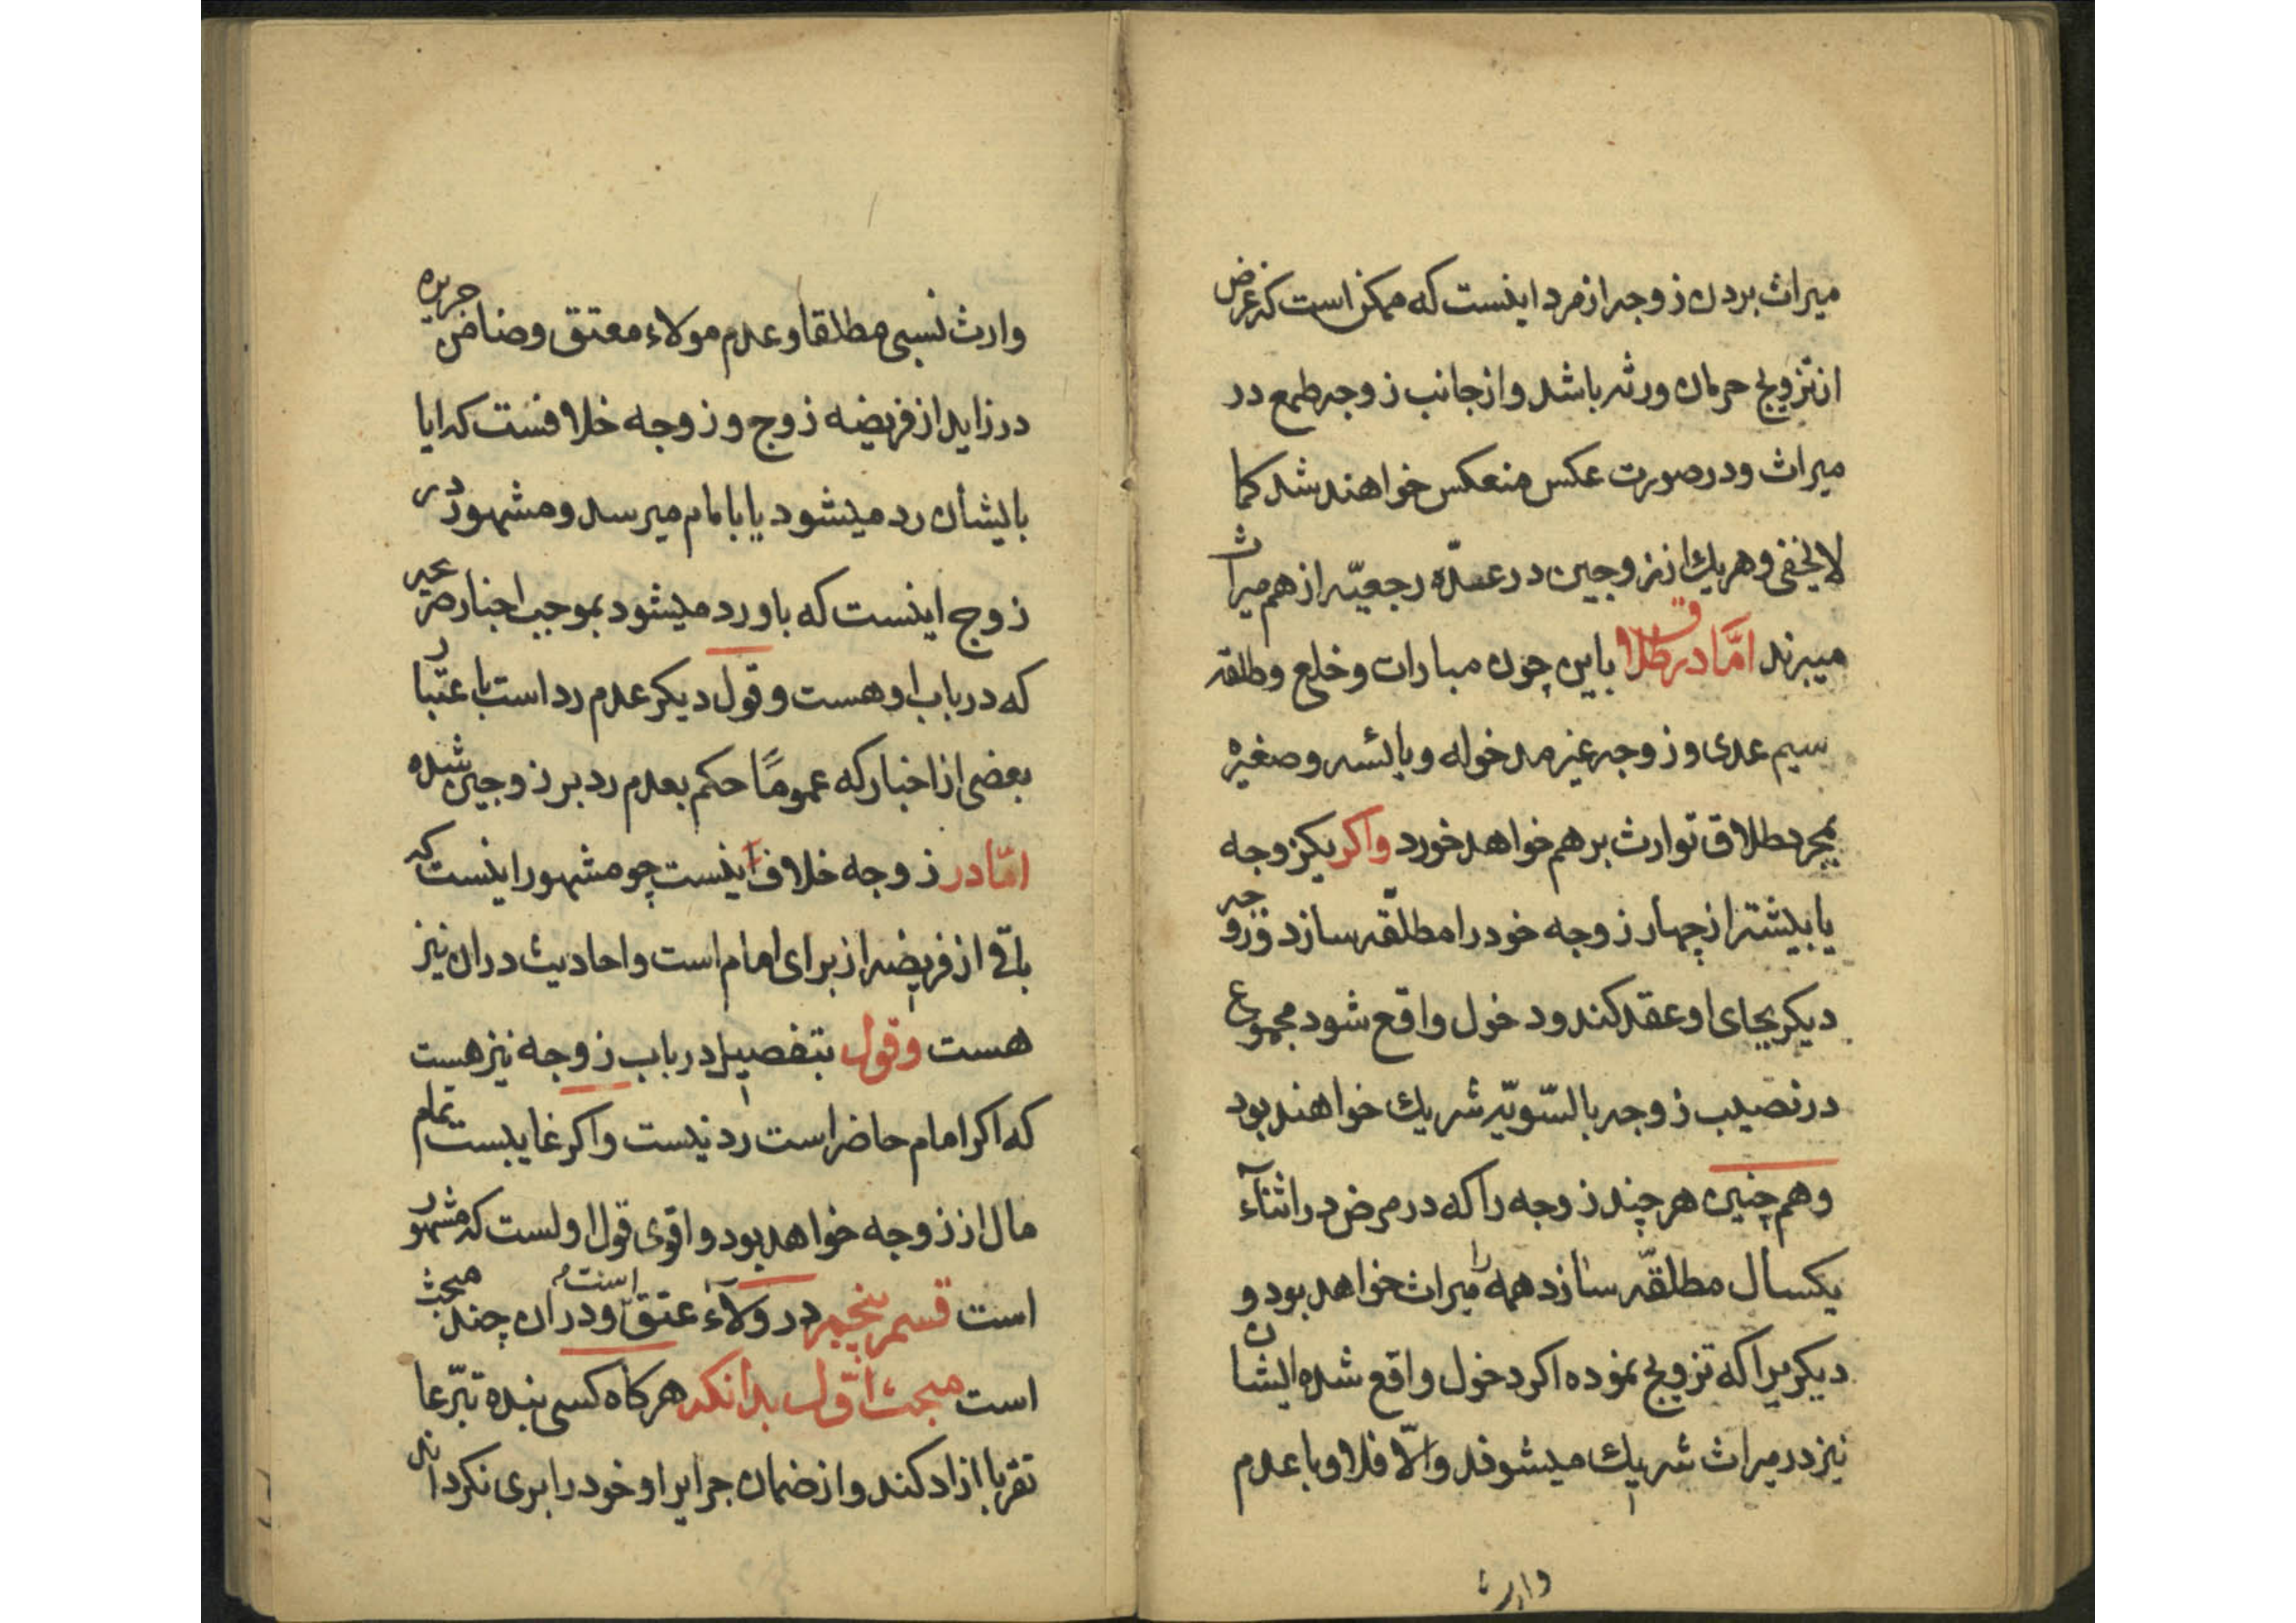 میراث بردن زوجه از مرد اینست که ممکن است که غرض
از تزویج حرمان ورثه باشد و از جانب زوجه طمع در
میراث و در صورت عکس منعکس خواهند شد کما
لا یخفی و هر یک از زوجین در عدّه رجعیّه از هم میراث
میبرند امّا در طلاق باین چون مبارات و خلع و طلقه
سیم عدی و زوجه غیر مدخوله و یائسه و صغیره
بمجرد طلاق توارث بر هم خواهد خورد واکر یکزوجه
یا بیشتر از چهار زوجه خود را مطلّقه سازد و زوجه
دیکر بجای او عقد کند و دخول واقع شود مجموع
در نصیب زوجه بالسّویّه شریک خواهند بود
و هم چنین هر چند زوجه را که در مرض در اثنآء
یکسال مطلقّه سازد همه را میراث خواهد بود و
دیکریرا که تزویج نموده اکر دخول واقع شده ایشان
نیز در میراث شریک میشوند و الّا فلا و با عدم
وارث
وارث نسبی مطلقا و عدم مولاء معتق و ضامن جریره
در زاید از فریضه زوج و زوجه خلافست که ایا
بایشان رد میشود یا بامام میرسد و مشهور در
زوج اینست که باو رد میشود بموجب اخبار صریحه
که در باب او هست و قول دیکر عدم رد است باعتبار
بعضی از اخبار که عموماً حکم بعدم رد بر زوجین شده
امّا در زوجه خلاف اینست چو مشهور اینست که
باقی از فریضه از برای امام است و احادیث در ان نیز
هست و قول بتفصیل در باب زوجه نیز هست
که اکر امام حاضر است رد نیست و اکر غایبست تمام
مال از زوجه خواهد بود و اقوی قول اولست که مشهور
است قسم پنجم در ولآء عتق است و در ان چند مبحث
است مبحث اوّل بدانکه هرکاه کسی بنده تبرّعا
تقربا ازاد کند و از ضمان جرایر او خود را بری نکرداند